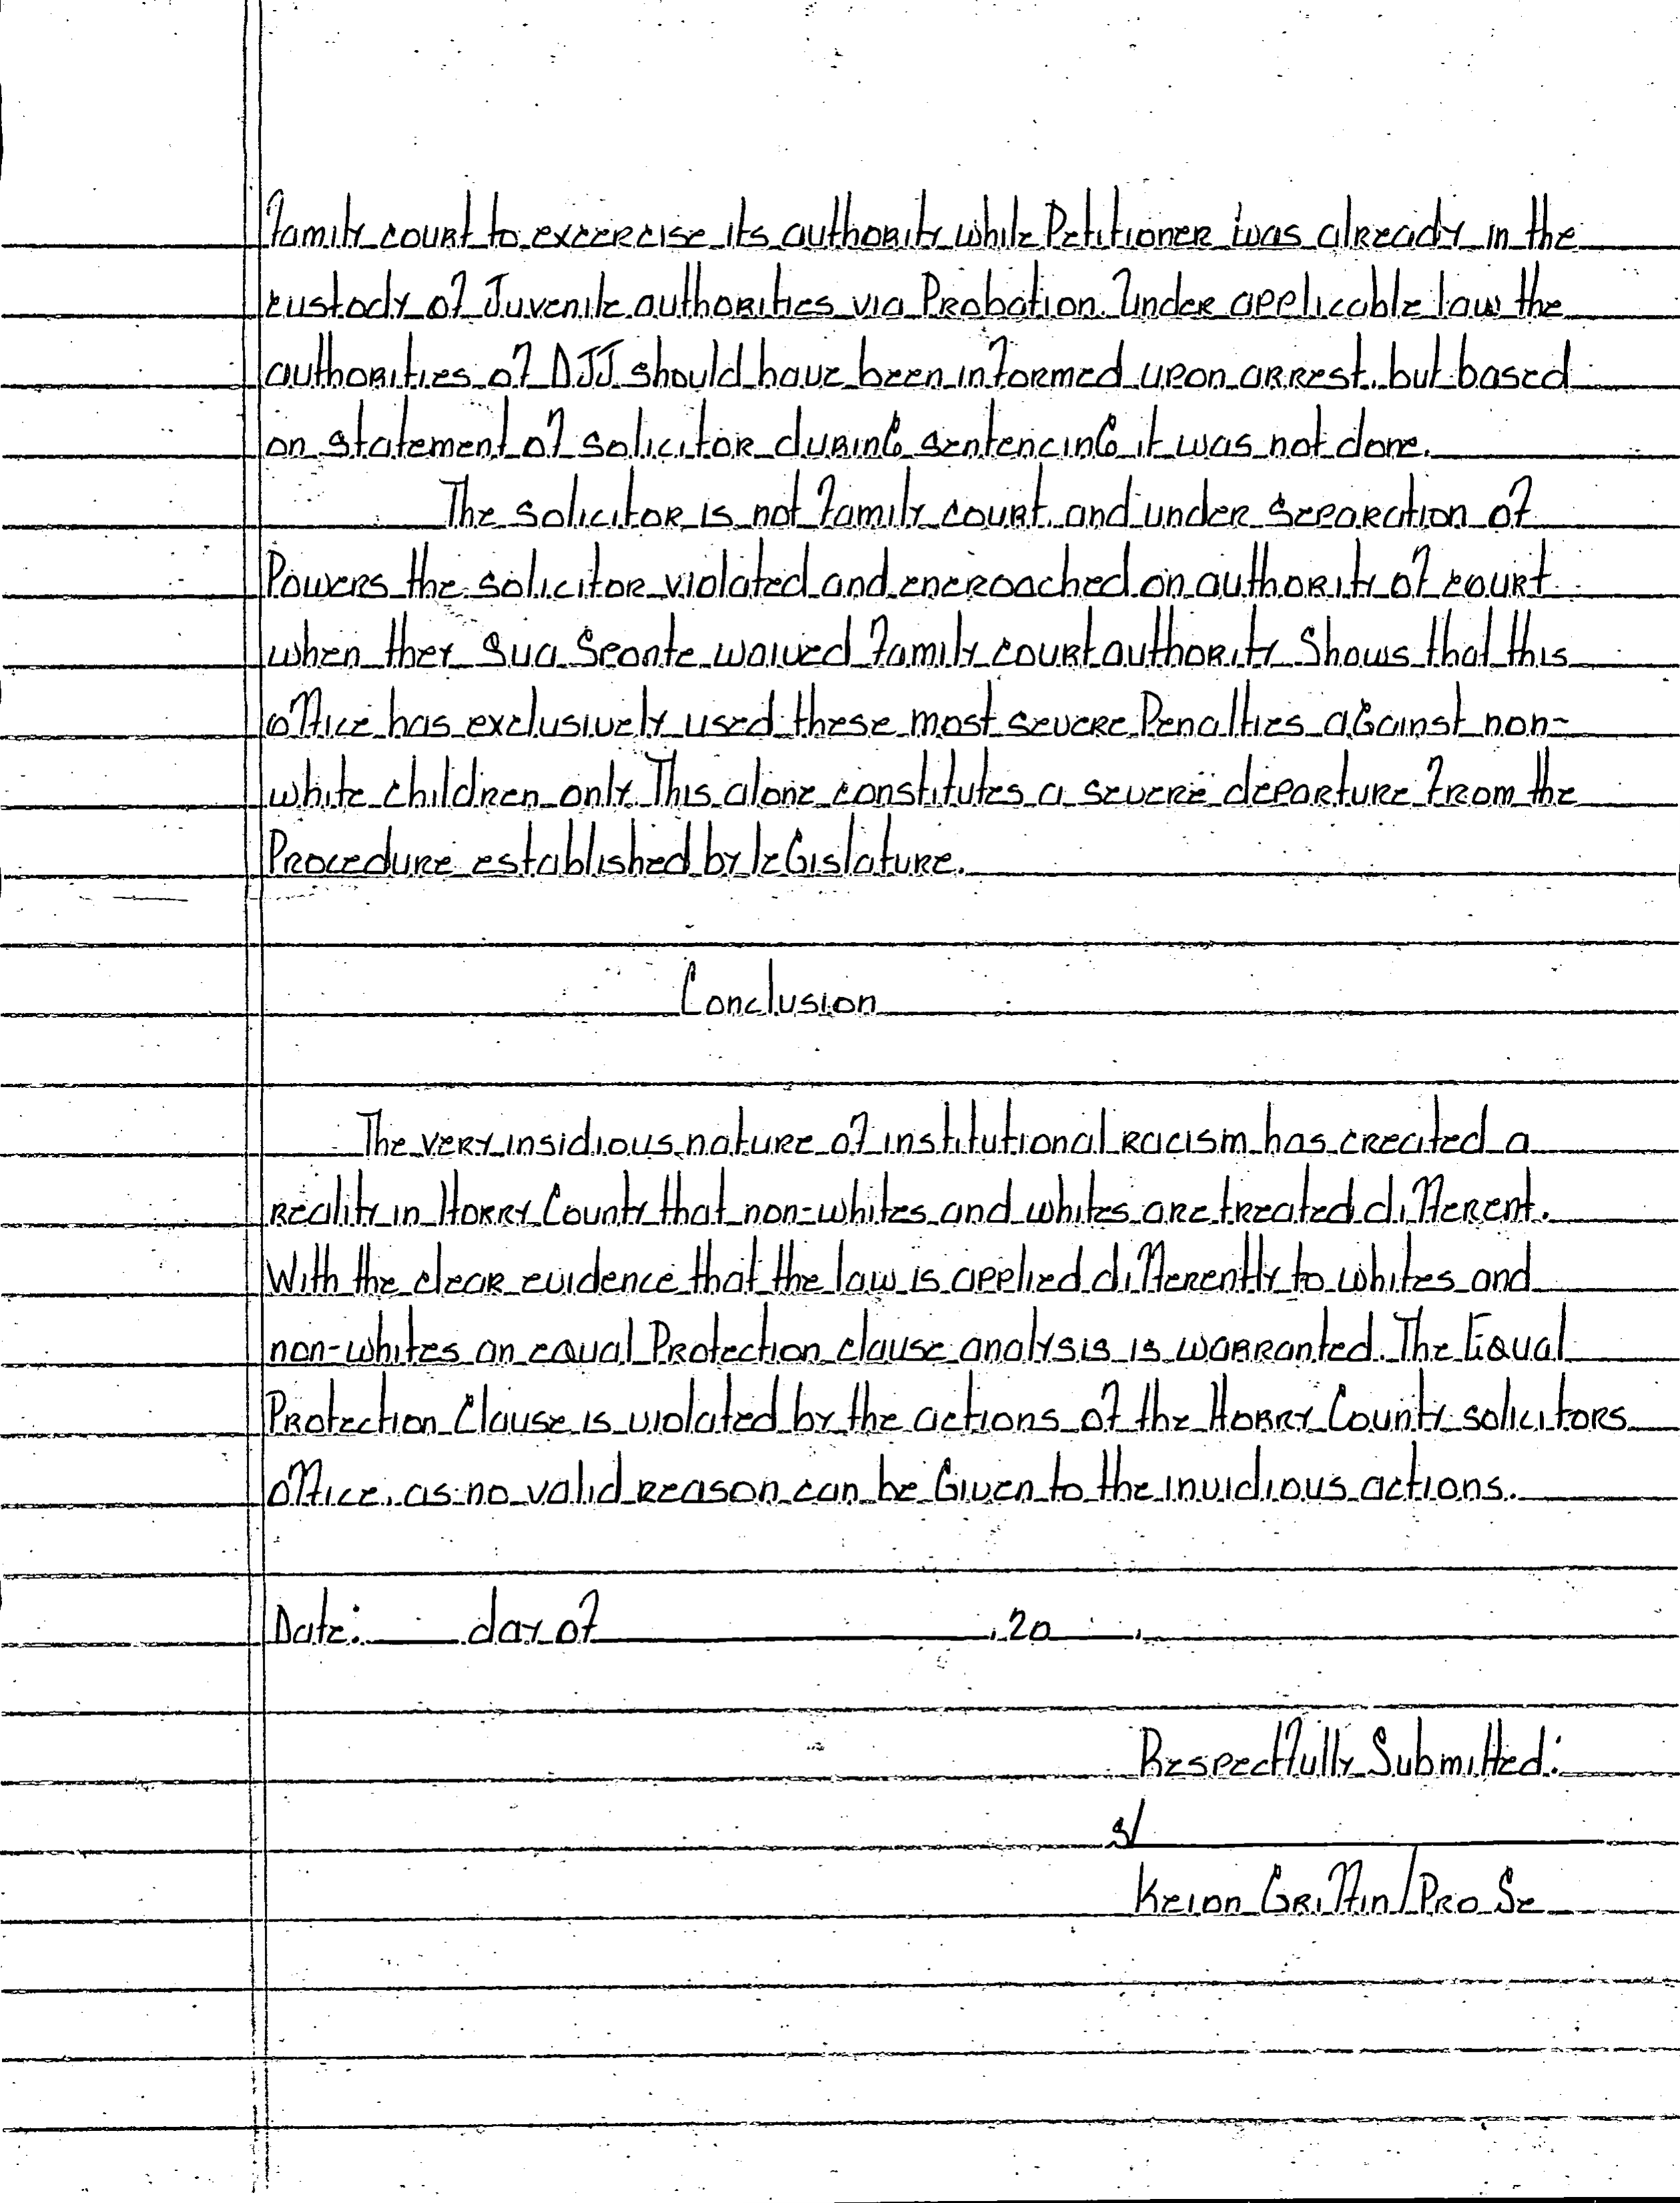 family court to excercise its authority while Petitioner was already in the
custody of Juvenile authorities via Probation. Under applicable law the
authorities of DJJ should have been informed upon arrest, but based
on statement of solicitor during sentencing it was not done.
The solicitor is not family court, and under separation of
Powers the solicitor violated and encroached on authority of court
when they Sua Sponte waived family court authority. Shows that this
office has exclusively used these most severe Penalties against non-
white children only. This alone constitutes a severe departure from the
Procedure established by legislature.
Conclusion
The very insidious nature of institutional racism has created a
reality in Horry County that non-whites and whites are treated different.
With the clear evidence that the law is applied differently to whites and
non-whites an equal Protection clause analysis is warranted. The Equal
Protection Clause is violated by the actions of the Horry County solicitors
office, as no valid reason can be Given to the invidious actions.
Date: day of , 20 .
Respectfully Submitted:
s/
Keion Griffin/Pro Se